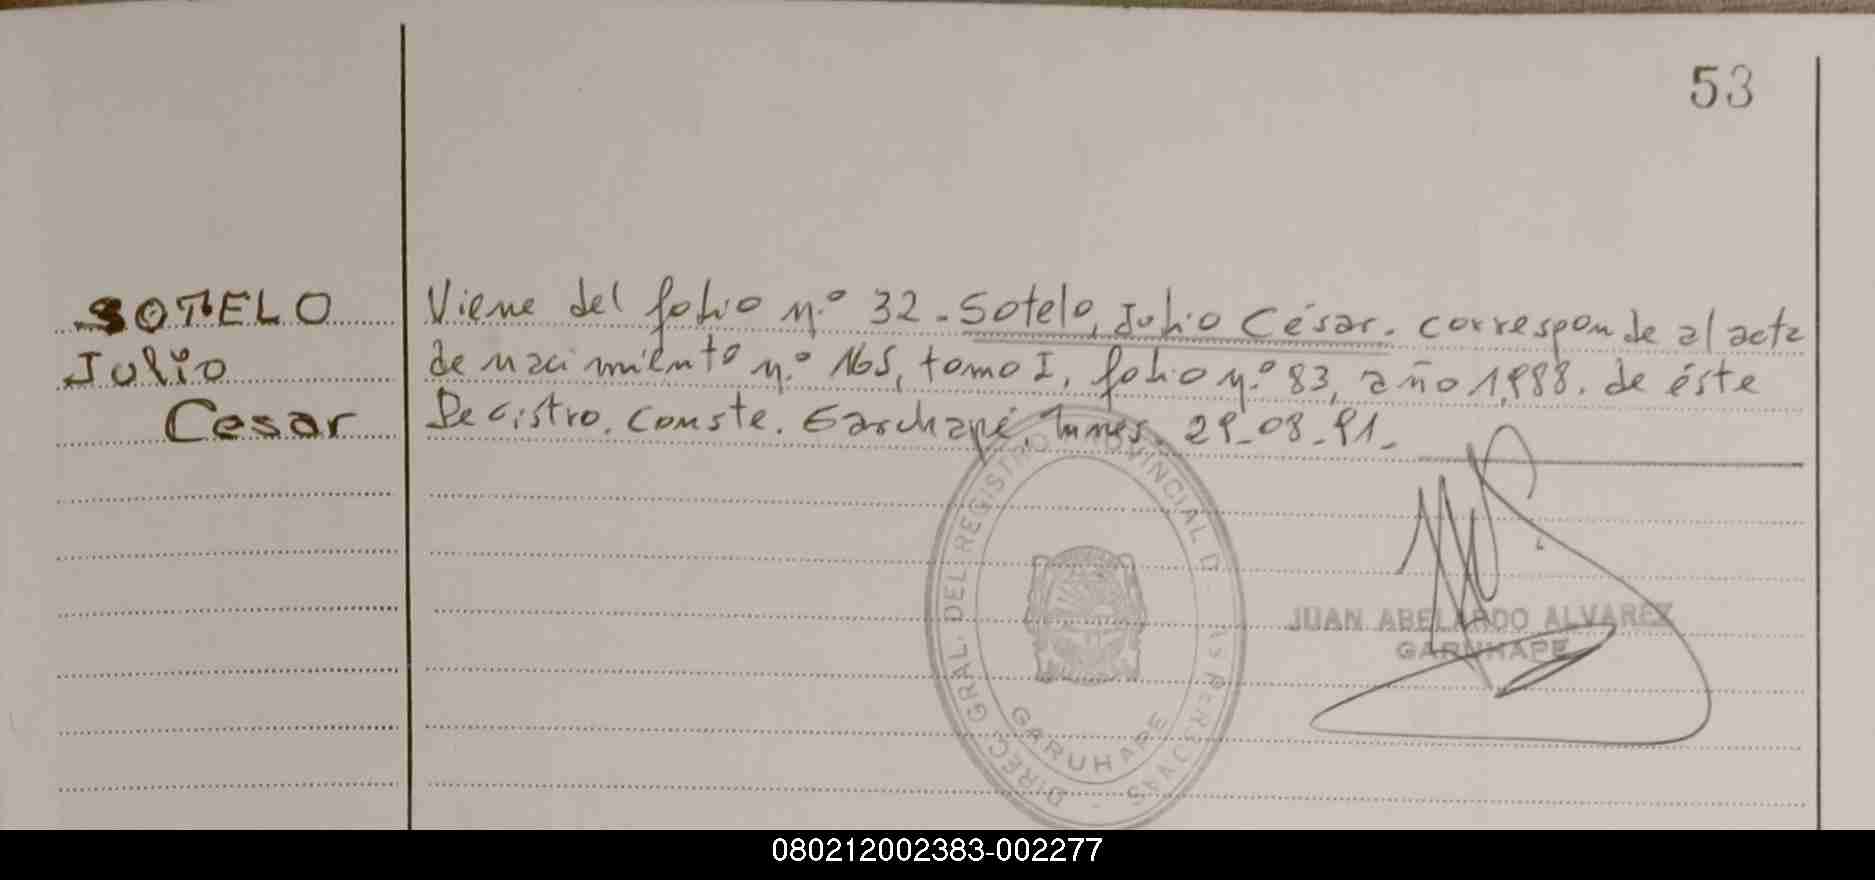 53
SOTELO
Julio
Cesar
Viene del folio n.º 32 - Sotelo, Julio César. corresponde al acta
de nacimiento n.º 165, tomo I, folio n.º 83, año 1,988. de éste
Registro. Conste. Garuhapé, lunes. 29-08-91-
DIRECC GRAL. DEL REGISTRO PROVINCIAL D LAS PERSONAS
GARUHAPE
JUAN ABELARDO ALVAREZ
GARUHAPE
080212002383-002277